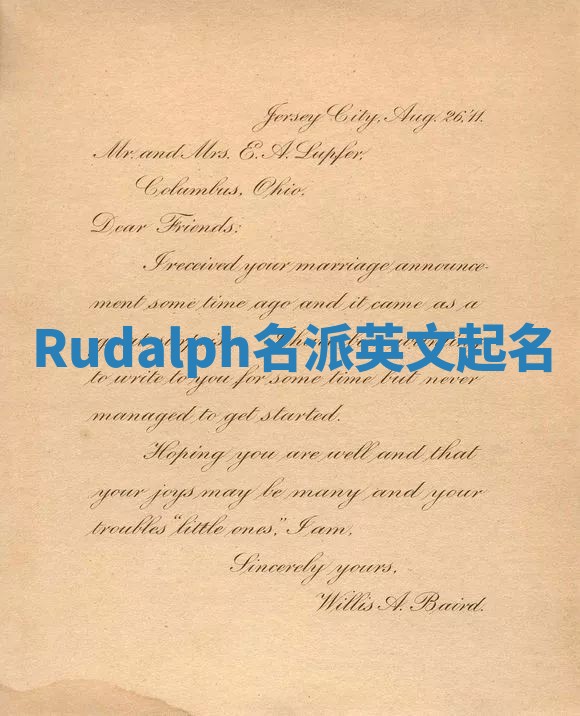 Jersey City, Aug. 26, '11.
Mr. and Mrs. E. A. Lupfer,
Columbus, Ohio.
Dear Friends:
I received your marriage announce-
ment some time ago and it came as a
Rudalph名派英文起名
to write to you for some time but never
managed to get started.
Hoping you are well and that
your joys may be many and your
troubles "little ones," I am,
Sincerely yours,
Willis A. Baird.